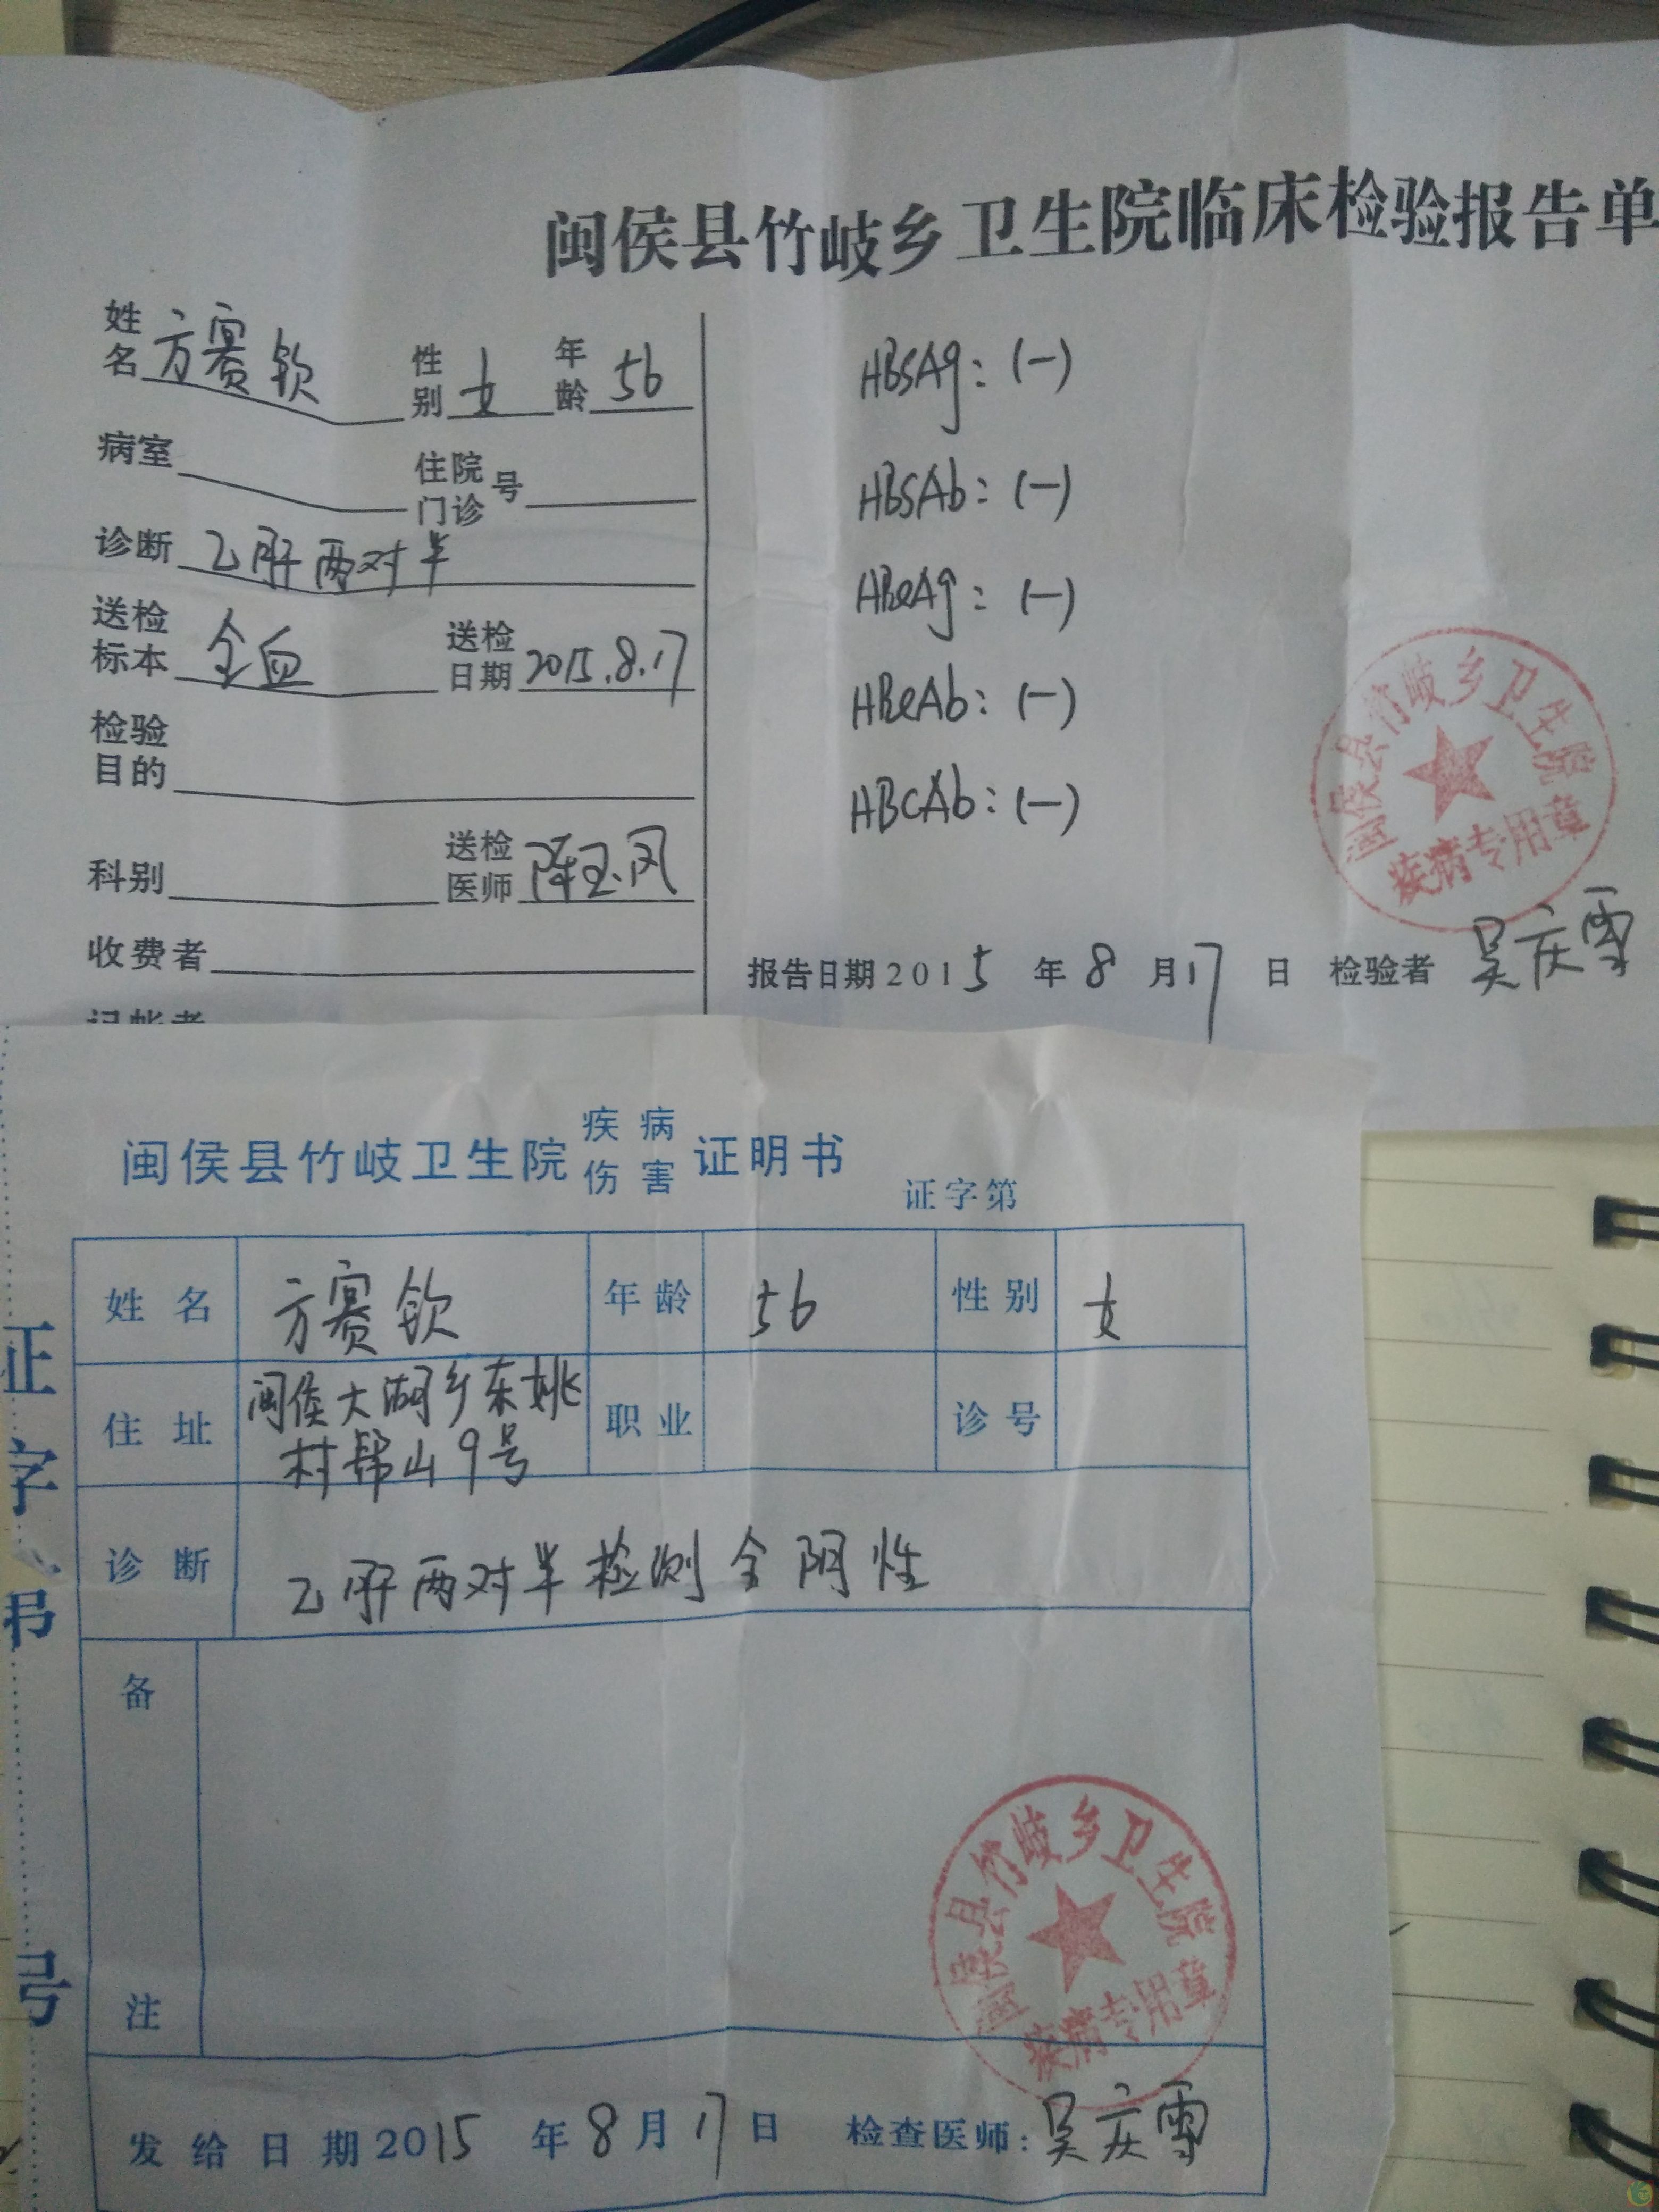 闽侯县竹岐乡卫生院临床检验报告单
姓名 方赛钦 性别 女 年龄 56
病室 住院门诊号
诊断 乙肝两对半
送检标本 全血 送检日期 2015.8.17
检验目的
科别 送检医师 陈玉凤
收费者
记帐者
HBsAg:(一)
HBsAb:(一)
HBeAg:(一)
HBeAb:(一)
HBcAb:(一)
闽侯县竹岐乡卫生院
疾病专用章
报告日期2015年8月17日 检验者 吴庆雪
闽侯县竹岐卫生院疾病伤害证明书
证字第
姓名 方赛钦 年龄 56 性别 女
住址 闽侯大湖乡东姚
村 山9号 职业 诊号
诊断 乙肝两对半检测全阴性
备注
闽侯县竹岐乡卫生院
疾病专用章
发给日期2015年8月17日 检查医师:吴庆雪
证字第号